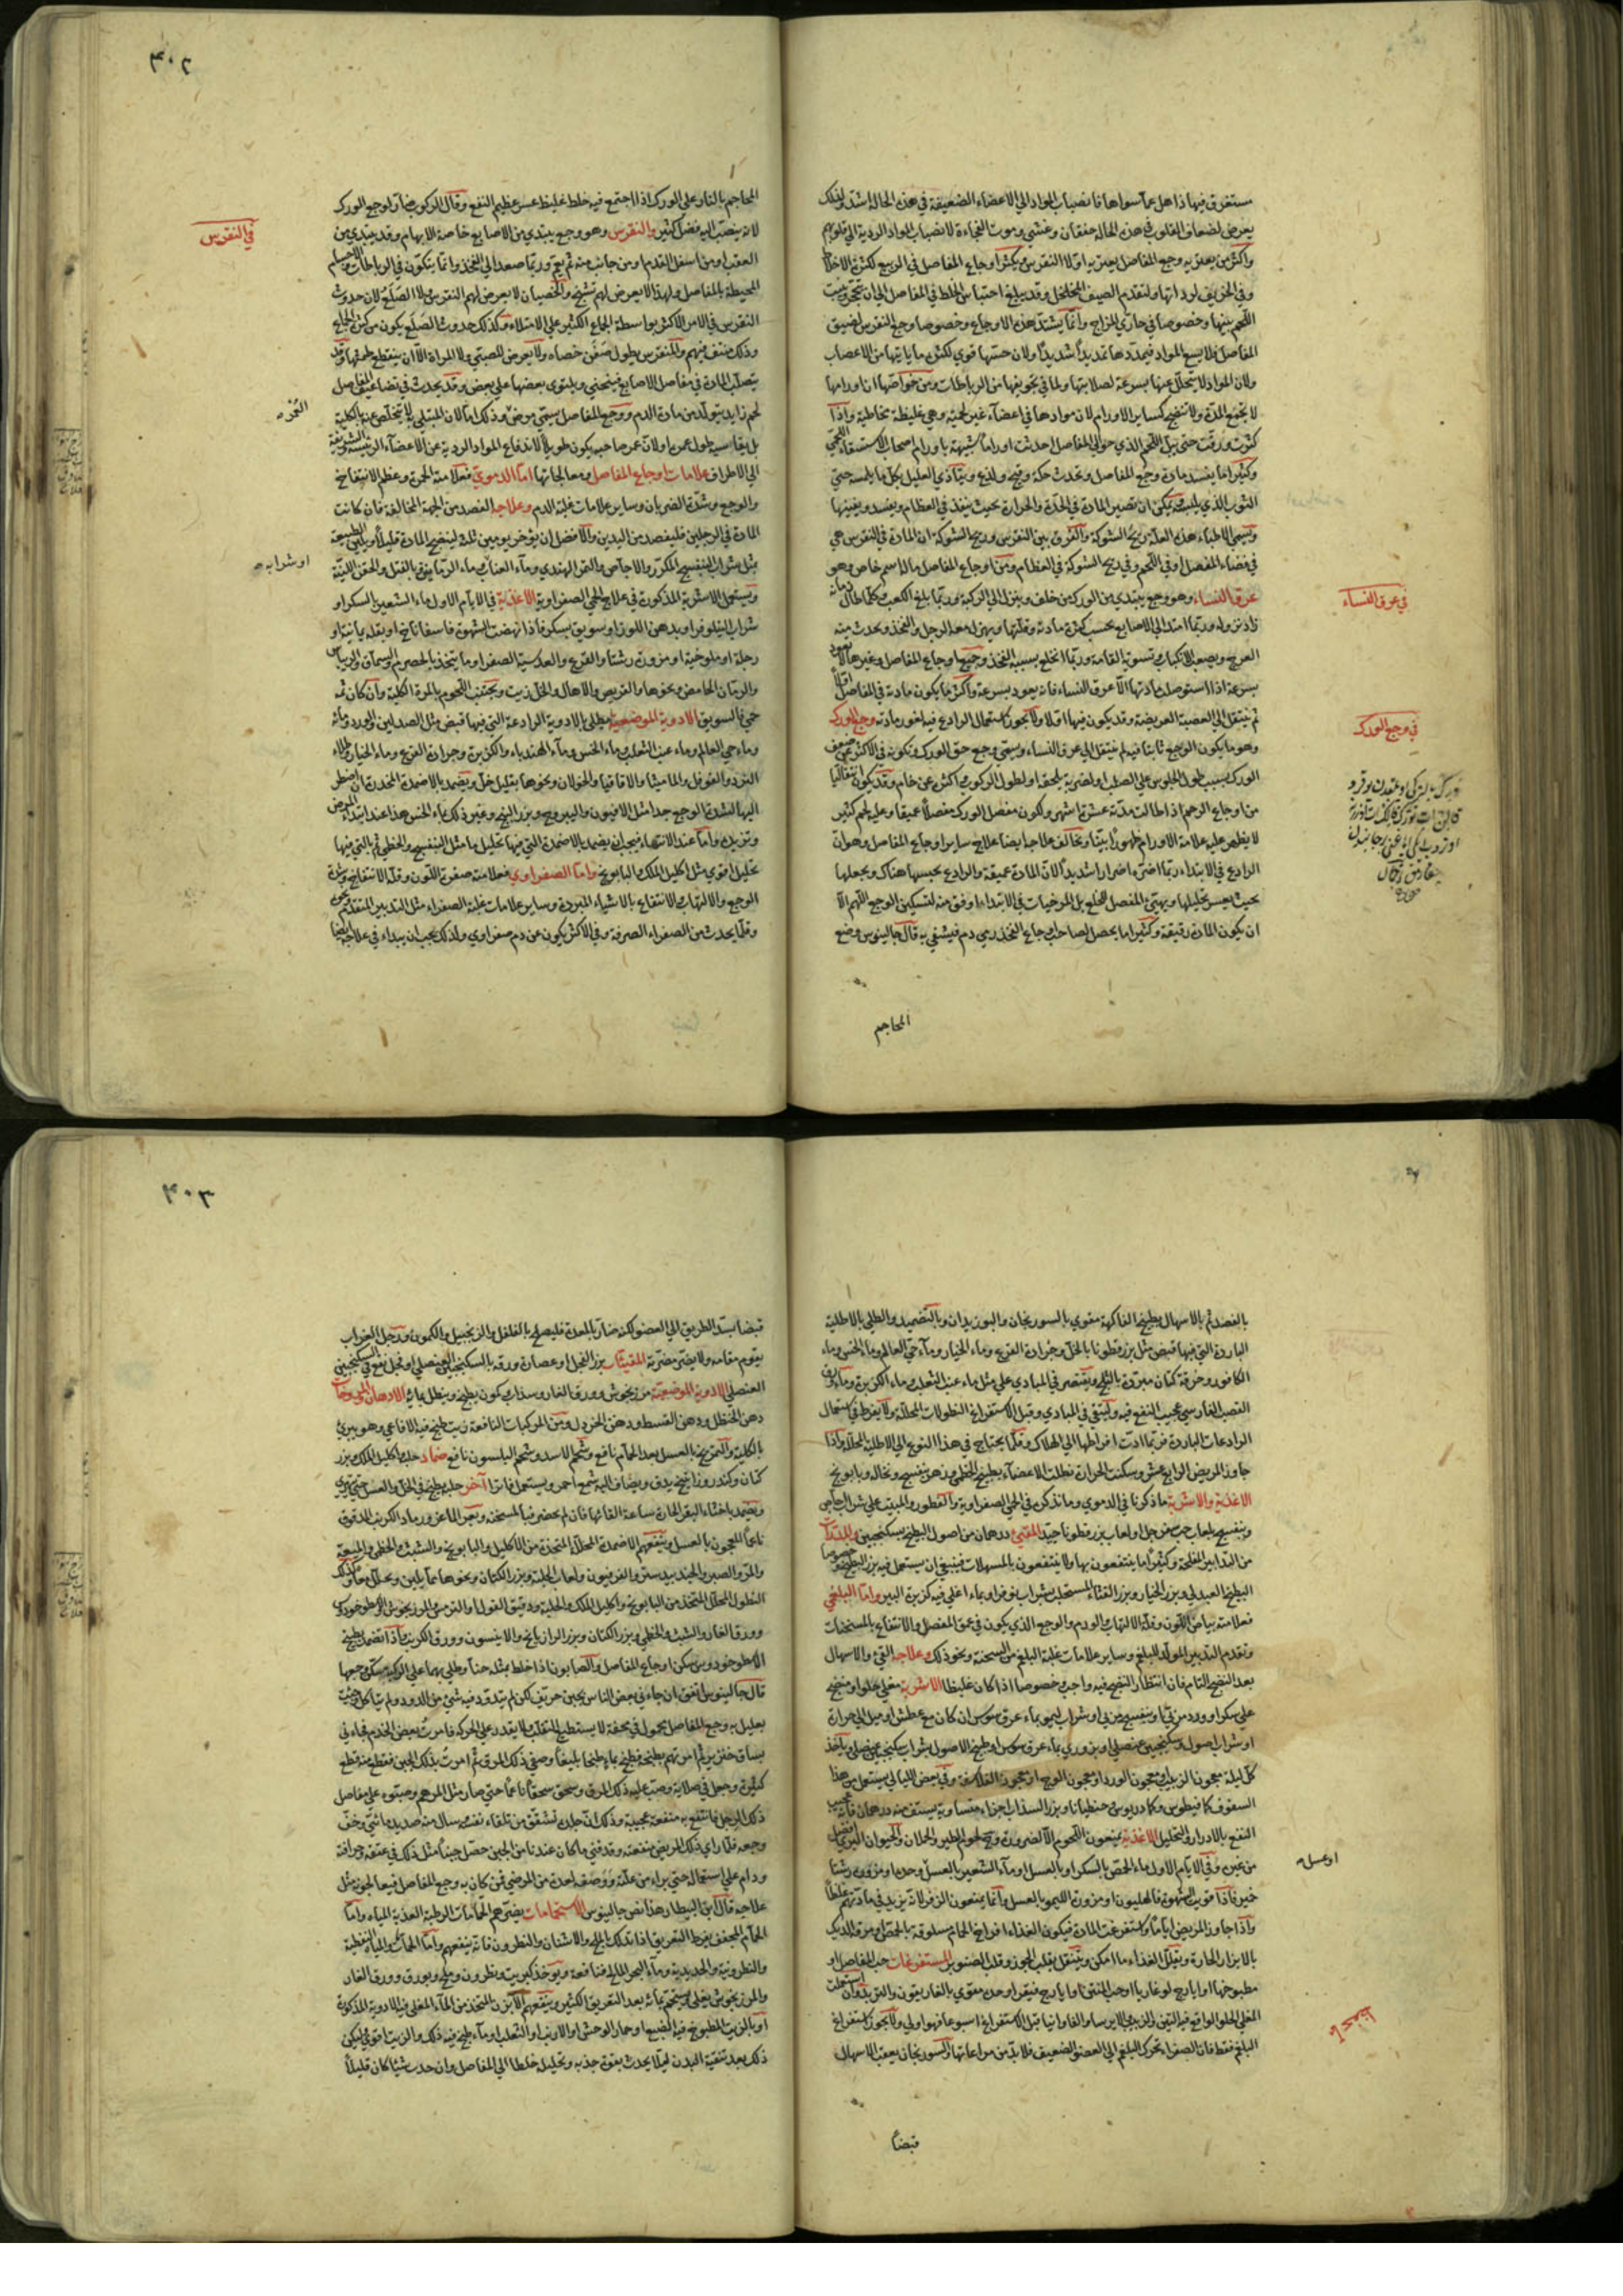 مستغرق فيها ذاهل عما سواها فانصباب المواد الي الاعضاء الضعيفة في هذه الحالة اشد ولذلك
يعرض لضعاف القلوب في هذه الحالة خفقان وغشي وموت الفجاءة لانصباب المواد الردية الي قلوبهم
واكثر من يعتريه وجع المفاصل يعتريه اولا النقرس ويكثر اوجاع المفاصل في الربيع لكثرة الاخلاط
وفي الخريف لرداتها ولتقدم الصيف المخلخل وقد يبلغ احتباس الخلط في المفاصل الي ان يتحجر وينبت
اللحم بينها وخصوصا في حاري المزاج وانما يشتد هذه الاوجاع وخصوصا وجع النقرس لضيق
المفاصل فلا يسع المواد فيمددها تمديدا شديدا ولان حسها قوي لكثرة ما ياتيها من الاعصاب
ولان المواد لا يتحلل عنها بسرعة لصلابتها ولما في تجويفها من الرباطات ومن خواصها ان اورامها
لا تجمع المدة ولا تنضج كساير الاورام لان موادها في اعضاء غير لحمية وهي غليظة مخاطية واذا
كثرت ورقت حتى يبل اللحم الذي حوالي المفاصل احدثت اوراما شبيهة باورام اصحاب الاستسقاء اللحمي
وكثيرا ما يفسد مادة وجع المفاصل وتحدث حكة ولذع ويتأذي العليل بكل ما يلمسه حتي
الثوب الذي يلبسه ويمكن ان تصير المادة في الحدة والحرارة بحيث ينفذ في العظام ويفسده ويفنيها
ويسمي الاطباء هذه العلة ريح الشوكة والفرق بين النقرس وريح الشوكة ان المادة في النقرس هي
في فضاء المفصل او في اللحم وفي ريح الشوكة في العظام ومن اوجاع المفاصل ما له اسم خاص وهو
عرق النساء وهو وجع يبتدي من الورك من خلف وينزل الي الركبة وربما بلغ الكعب وكلما طال زمانه
زاد نزوله وربما امتد الي الاصابع بحسب كثرة مادته وقلتها ويهزل معه الرجل والفخذ وتحدث منه
العرج ويصعب الانكباب وتسوية القامة وربما انخلع بسببه الفخذ وجميع اوجاع المفاصل وغيرها لا يعود
بسرعة اذا استوصلت مادتها الا عرق النساء فانه يعود بسرعة واكثر ما يكون مادته في المفاصل اولا
ثم ينتقل الي العصبة العريضة وقد يكون فيها اولا ولا يجوز استعمال الرادع فيه لغور مادته وجع الورك
وهو ما يكون الوجع ثابتا فيه لم ينتقل الي عرق النساء ويسمي وجع حق الورك وتكونه في الاكثر عن ضعف
الورك بسبب طول الجلوس علي الصلب او لضربة يلحقه او لطول الركوب واكثره عن خام وقد يكون انتقاليا
من اوجاع الرحم اذا طالت مدته عشرة اشهر ولكون مفصل الورك مفصلا عميقا وعليه لحم كثير
لا يظهر عليه علامة الاورام ظهورا بينا ويخالف علاجه ايضا علاج ساير اوجاع المفاصل وهو ان
الرادع في الابتداء ربما اضر به اضرارا شديدا لان المادة عميقة والرادع يحبسها هناك ويجعلها
بحيث يعسر تحليلها ويهيئ المفصل للخلع بل المرخيات في الابتداء اوفق منه لتسكين الوجع اللهم الا
ان يكون المادة رقيقة وكثيرا ما يحصل لصاحب اوجاع الفخذ رمي دم فيشفي به قال جالينوس وضع
المحاجم
في عرق النساء
في وجع الورك
٤٠٢
المحاجم بالنار علي الورك اذا اجتمع فيه خلط غليظ عسر عظيم النفع وقال الركوب ضار لوجع الورك
لانه ينصب اليه فضل كثير والنقرس وهو وجع يبتدي من الاصابع خاصة الابهام وقد يبتدي من
العقب او من اسفل القدم او من جانب منه ثم يعم وربما صعد الي الفخذ وانما يتكون في الرباطات والاجسام
المحيطة بالمفاصل ولهذا لا يعرض لهم تشنج والخصيان لا يعرض لهم النقرس ولا الصلع لان حدوث
النقرس في الامر الاكثر بواسطة الجماع الكثير علي الامتلاء وكذلك حدوث الصلع يكون من كثرة الجماع
وذلك منتف فيهم والمنقرس يطول صفن خصاه ولا يعرض للصبي ولا المراة الا ان ينقطع طمثها وقد
يتصلب المادة في مفاصل الاصابع فينحني ويلتوي بعضها علي بعض وقد يحدث في تضاعيف المفاصل
لحم زايد يتولد من مادة الدم ووجع المفاصل يسمي مرض وذلك اما لان المبتلي به لا يتخلص عنه بالكلية
بل يقاسيه طول عمره او لان عمر صاحبه يكون طويلا لاندفاع المواد الردية عن الاعضاء الرئيسة والشريفة
الي الاطراف علامات اوجاع المفاصل ومعالجاتها اما الدموي فعلامته الحمرة وعظم الانتفاخ
والوجع وشدة الضربان وساير علامات غلبة الدم وعلاجه الفصد من الجهة المخالفة فان كانت
المادة في الرجلين فليفصد من اليدين والافضل ان يؤخر يومين ثلثة لينضج المادة قليلا ويلين الطبيعة
بمثل شراب البنفسج المكرر والاجاص والتمر الهندي وماء العناب وماء الرمانين والفتل والحقن اللينة
ويستعمل الاشربة المذكورة في علاج الحمي الصفراوية الاغذية في الايام الاول ماء الشعير بالسكر او
شراب النيلوفر او بدهن اللوز او سويق بسكر فاذا نهضت الشهوة فاسفاناخ او بقلة يمانية او
رجلة او ملوخية او مزورة رشتا والقرع والعدسية الصفرا وما يتخذ بالحصرم والسماق والريباس
والرمان الحامض ونحوها والقريص والاهال والخل زيت ويجتنب اللحوم بالمرة الكلية وان كان ثمه
حمي فالسويق الادوية الموضعية يطلي بالادوية الرادعة التي فيها قبض مثل الصندلين والورد ومائه
وماء حي العالم وماء عنب الثعلب وماء الخس وماء الهندباء والكزبرة وجرادة القرع وماء الخيار وطلاء
الورد والفوفل والماميثا والاقاقيا والحولان ونحوها بقليل خل ويضمد بالاضمدة المخدرة ان اضطر
اليها لشدة الوجع جدا مثل الافيون واليبروح وبزر البنج وغير ذلك بماء الخس هذا عند ابتداء المرض
وتزيده واما عند الانتهاء فيجب ان يضمد بالاضمدة التي فيها تحليل ما مثل البنفسج والخطمي ثم بالتي فيها
تحليل اقوي مثل اكليل الملك والبابونج واما الصفراوي فعلامته صفرة اللون وقلة الانتفاخ وشدة
الوجع والالتهاب والانتفاع بالاشياء المبردة وساير علامات غلبة الصفراء مثل التدبير المتقدم ونحوه
وقلما يحدث من الصفراء الصرفة وفي الاكثر يكون عن دم صفراوي ولذلك يجب ان يبداء في علاجه ايضا
في النقرس
او شرابه
بالفصد ثم بالاسهال بطبيخ الفاكهة مقوي بالسورنجان والبوزيدان وبالتضميد والطلي بالاطلية
الباردة التي فيها قبض مثل بزرقطونا بالخل وجرادة القرع وماء الخيار وماء حي العالم وماء الخس وماء
الكافور وخرقة كتان مبردة بالثلج ويقتصر في المبادي علي مثل ماء عنب الثعلب وماء الكزبرة وماء ورق
القصب الفارسي عجيب النفع فيه وليتقي في المبادي وقبل الاستفراغ النطولات المحللة ولا يفرط في استعمال
الرادعات الباردة فربما ادت افراطها الي الهلاك وقلما يحتاج في هذا النوع الي الاطلية المحللة واذا
جاوز المريض الرابع عشر وسكنت الحرارة نطلت الاعضاء بطبيخ الخطمي وزهر بنفسج ونخالة وبابونج
الاغذية والاشربة ما ذكرنا في الدموي وما نذكره في الحمي الصفراوية والفطور والمبيت علي شراب اجاص
وبنفسج بلعاب حب سفرجل او لعاب بزر قطونا جيد المقيئ درهمان من اصول البطيخ بسكنجبين والمدرات
من التدابير المفلحة وكثيرا ما ينتفعون بها ولا ينتفعون بالمسهلات فينبغي ان يستعمل فيه بزر البطيخ وخصوصا
البطيخ العبدلي وبزر الخيار وبزر القثاء المستحلب بشراب نوفر او بماء اغلي فيه كزبرة البير واما البلغمي
فعلامته بياض اللون وقلة الالتهاب والورم والوجع الذي يكون في عمق المفصل والانتفاع بالمسخنات
وتقدم التدبير المولد للبلغم وساير علامات غلبة البلغم من السحنة ونحو ذلك وعلاجه القيئ والاسهال
بعد النضج التام فان انتظار النضج فيه واجب وخصوصا اذا كان غليظا الاشربة مغلي حلو او منضج
علي سكر او ورد مربي او بنفسج مربي او شراب ليمو بماء عرق سوس ان كان مع عطش او ميل الي حرارة
او شراب اصول وسكنجبين عنصلي او بزوري بماء عرق سوس او طبيخ الاصول بشراب سكنجبين عنصلي ويأخذ
كل ليلة معجون الزبيب ومعجون الورد او معجون الوج او معجون الفلاسفة وفي بعض الليالي يستعمل من هذا
السفوف كمافيطوس وكمادريوس وجنطيانا وبزر السذاب اجزاء متساوية يستف منه درهمان فانه عجيب
النفع بالادرار والتحليل الاغذية يمنعون اللحوم الا لضرورة ولحوم الطير والحملان والحيوان البري افضل
من غيره وفي الايام الاول ماء الحمص بالسكر او بالعسل او ماء الشعير بالعسل وحده او مزورة رشتا
خبز فاذا قويت الشهوة فالهليون او مزورة الليمو بالعسل وانما يمنعون الزفر لانه يزيد في مادتهم غلظا
واذا جاوز المريض اياما واستفرغت المادة فيكون الغذاء افراخ الحمام مسلوقة بالحمص او مرق الديك
بالابزار الحارة ويقلل الغذاء ما امكن ويتنقل بقلب الجوز وقلب الصنوبر المستفرغات حب المفاصل او
مطبوخها او ايارج لوغاذيا او حب المنتن او ايارج فيقرا وحده مقوي بالغاريقون والتربد وان استعملت
المغلي الحلو الواقع فيه التين والزبيب والايرسا والفاوانيا قبل الاستفراغ اسبوعا فهو اولي ولا يجوز استفراغ
البلغم فقط فان الصفراء تحرك البلغم الي العضو الضعيف فلا بد من مراعاتها والسورنجان يعقب الاسهال
قبضا
او عسل
٤٠٣
قبضا يسد الطريق الي العضو لكنه ضار بالمعدة فليصلح بالفلفل والزنجبيل والكمون ورجل الغراب
يقوم مقامه ولا يضر مضرته المقيئات بزر الفجل او عصارة ورقه بالسكنجبين العنصلي او فجل نقع في السكنجبين
العنصلي الادوية الموضعية مرزنجوش وورق الغار وسذاب وكمون يطبخ وينطل بمائه الادهان والمروخات
دهن الحنظل ودهن القسط ودهن الخردل ومن المركبات النافعة زيت طبخ فيه الافاعي وهو يبرئ
بالكلية والتمريخ بالعسل بعد الحمام نافع وشحم الاسد وشحم البلسون نافع ضماد حلبة اكليل الملك وبزر
كتان وكندر وراتينج يدق ويضاف اليه شمع احمر ويستعمل فاترا آخر حلبة يطبخ في الخل والعسل حتي يهري
ويضمد باخثاء البقر الحارة ساعة القائها فان لم يحضر فبالمسخنة وبعر الماعز ورماد الكرنب المدقوق
ناعما المعجون بالعسل وينفعهم الاضمدة المحللة المتخذة من الاكليل والبابونج والشبث والخطمي والميعة
والمر والصبر والجندبيدستر والفرفيون ولعاب الحلبة وبزر الكتان ونحوها مما يلين ويحلل معا وكذلك
النطول المحلل المتخذ من البابونج واكليل الملك والحلبة ودقيق الفول والترمس والمرزنجوش والاسطوخودوس
وورق الغار والشبث والخطمي وبزر الكتان وبزر الرازيانج والانيسون وورق الكرنب واذا تضمد بطبيخ
الاسطوخودوس سكن اوجاع المفاصل والصابون اذا خلط بمثله حنا وطلي بهما علي الركبة سكن وجعها
قال جالينوس اتفق ان جاءني بعض الناس بجبن حريف لكن لم يتدود فيه شئ من الدود ولم يتاكل وجئت
بعليل به وجع المفاصل محمول في محفة لا يستطيع التقلب ولا يقدر علي الحركة فامرت بعض الخدم فجاءني
بساق خنزير ثم امرتهم بطبخه فطبخ بماء طبخا بليغا وصفي ذلك المرق ثم امرت بذلك الجبن فقطع منه قطع
كثيرة وجعل في صلاية وصب عليه ذلك المرق وسحق سحقا ناعما حتي صار مثل المرهم وصبوه علي مفاصل
ذلك الرجل فانتفع به منفعة عجيبة وذلك ان جلده تشقق من تلقاء نفسه وسال منه صديد ماشئ وخف
وجعه فلما راي ذلك المريض منفعته وقد فني ما كان عندنا من الجبن حصل جبنا مثل ذلك في عتقه وحرافته
ودام علي استعماله حتي براء من علته ووصفه لعدة من المرضي فمن كان به وجع المفاصل فبعالجونه مثل
علاجه قال ابن البيطار هذا نص جالينوس الاستحمامات يضرهم الحمامات الرطبة العذبة المياه واما
الحمام المجفف بفرط التعريق اذا تدلك بالملح والاشنان والنطرون فانه ينفعهم واما الحمات والمياه النفطية
والنطرونية والحديدية وماء البحر المالح فنافعة ويوخذ كبريت ونطرون وملح وبورق وورق الغار
والمرزنجوش يغلي ويستحم بمائه بعد التعريق الكثير وينفعهم الابزن المتخذ من الماء المغلي فيه الادوية المذكورة
او بالزيت المطبوخ فيه الضبع او حمار الوحش او الارنب او الثعلب او ماء طبخ فيه ذلك والزيت اقوي وليكن
ذلك بعد تنقية البدن ليلا يحدث بقوة جذبه وتحليله خلطا الي المفاصل وان حدث شيئا كان قليلا